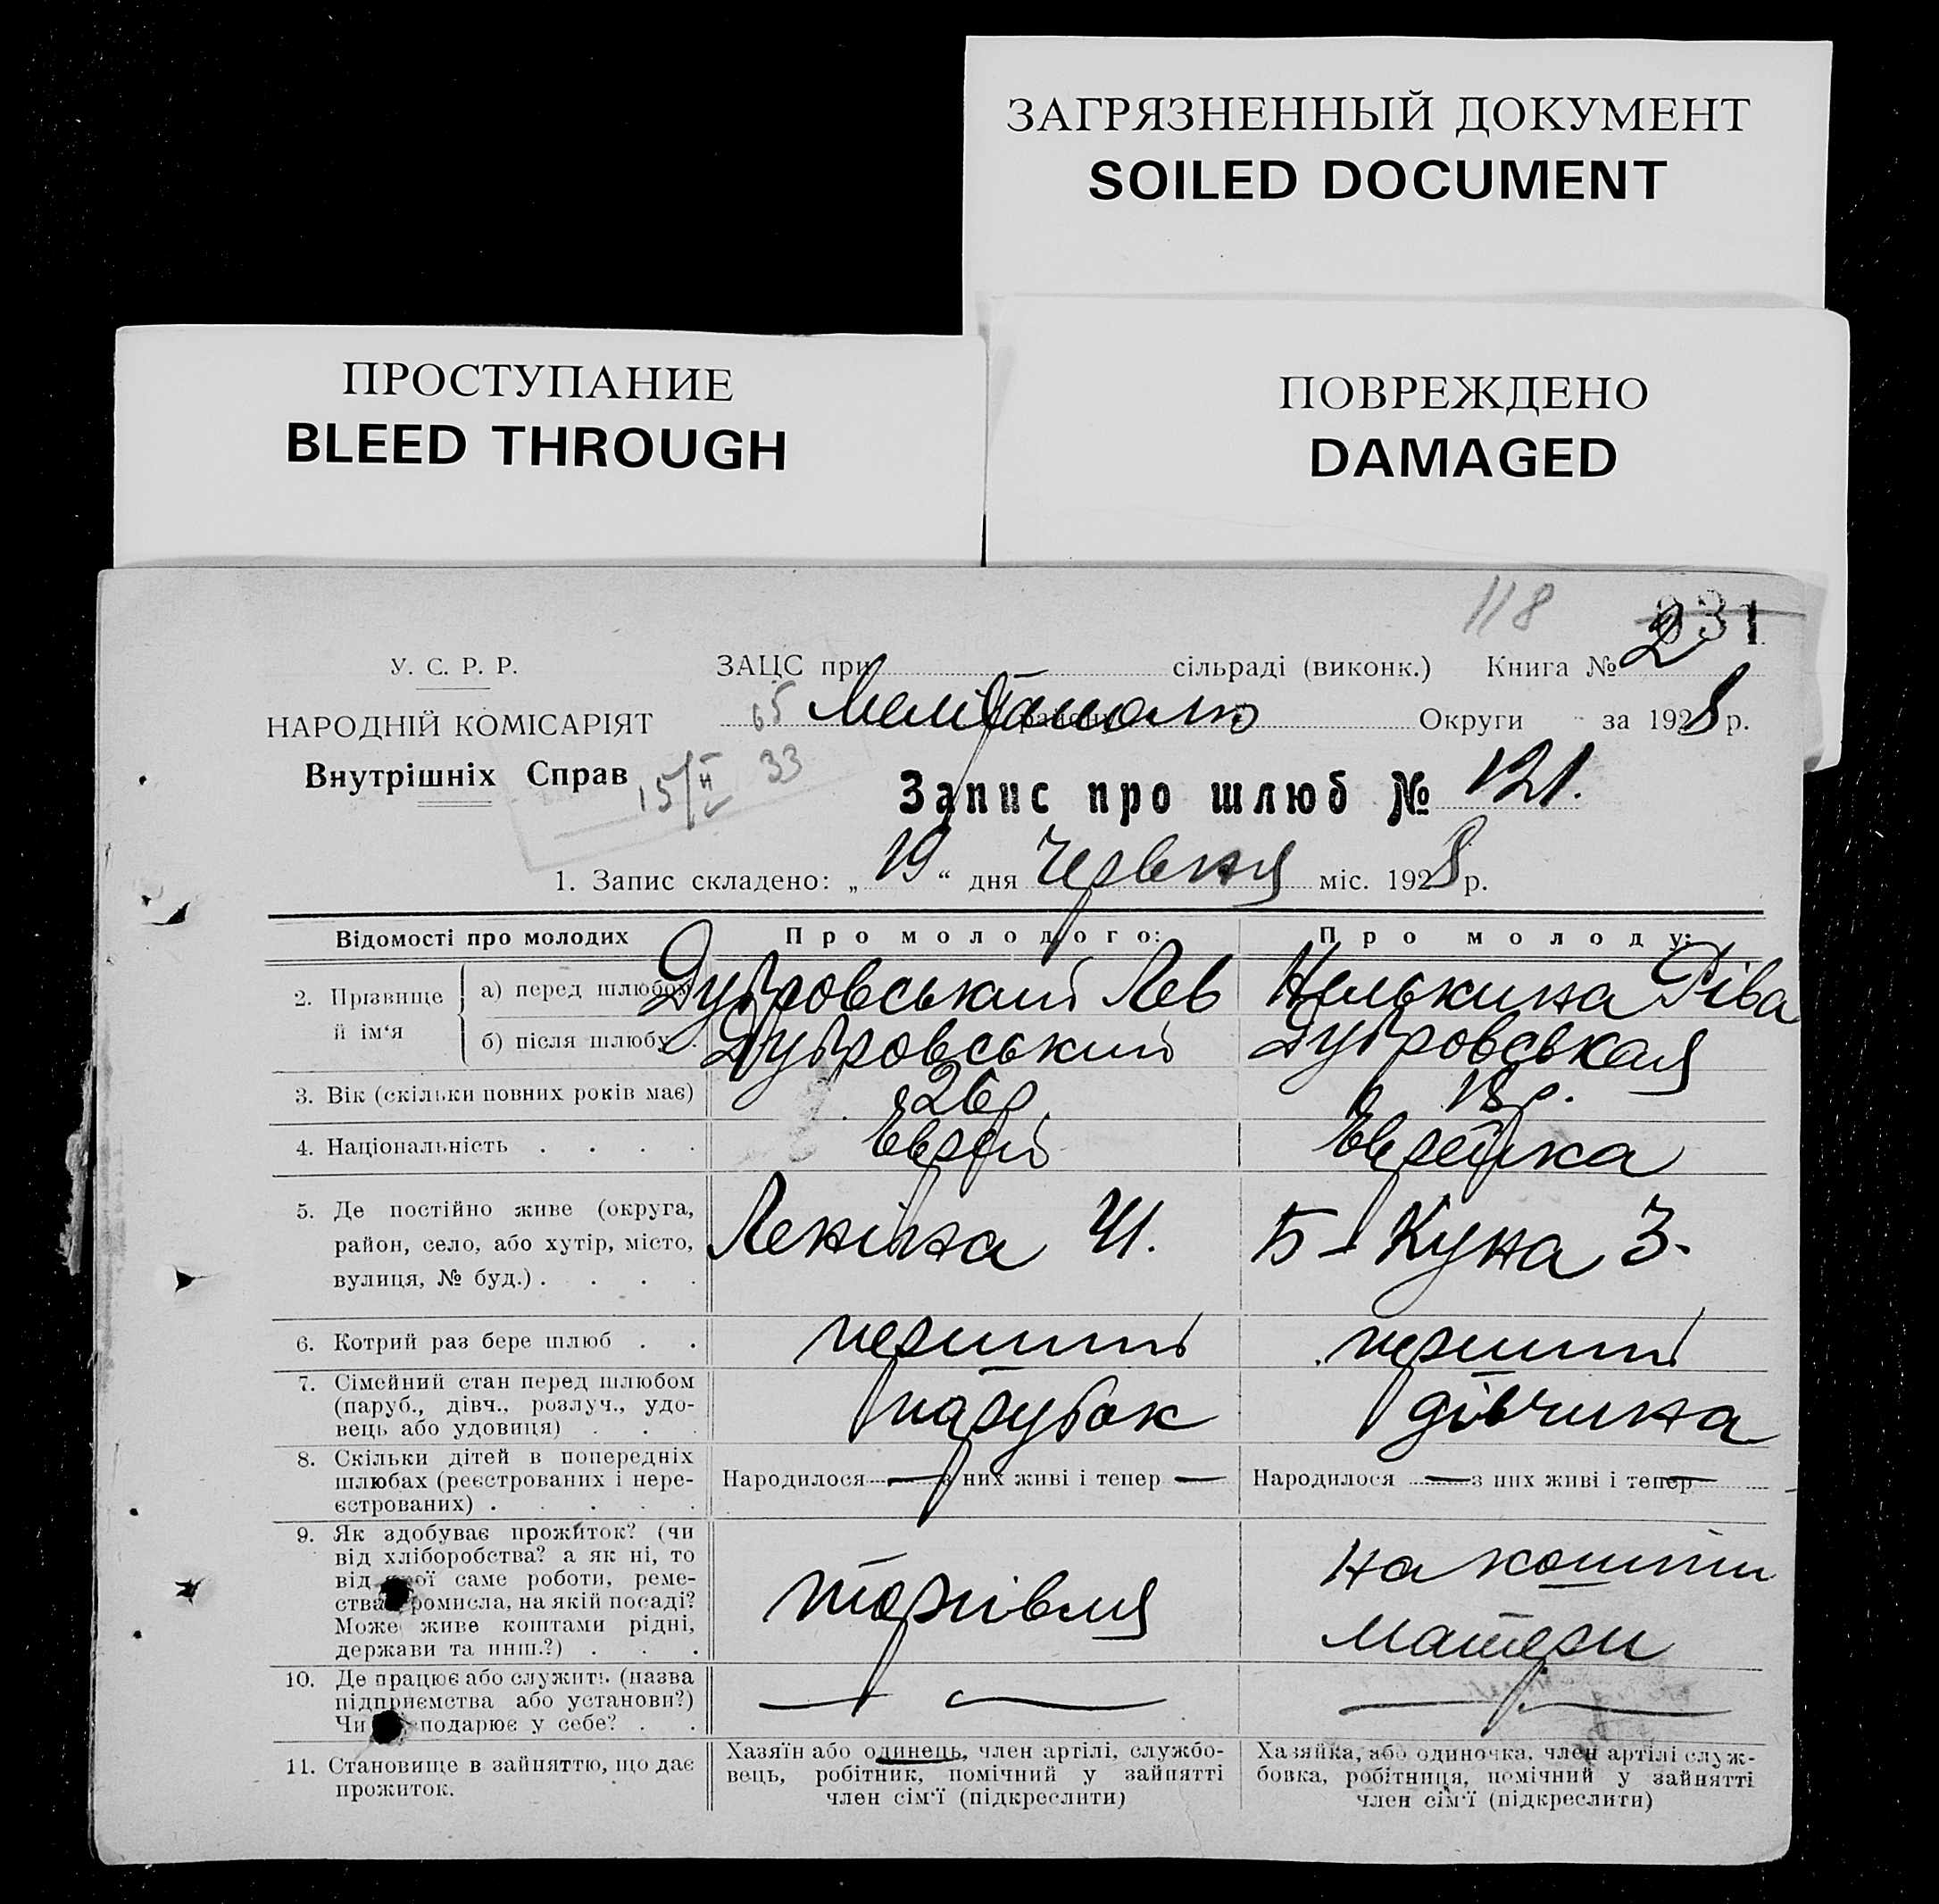 ЗАГРЯЗНЕННЫЙ ДОКУМЕНТ
SOILED DOCUMENT
ПРОСТУПАНИЕ
BLEED THROUGH
ПОВРЕЖДЕНО
DAMAGED
118
231
У. С. Р. Р.
НАРОДНІЙ КОМІСАРІЯТ
Внутрішніх Справ
15/II 33
ЗАЦС при сільраді (виконк.) Книга № 2
65 Округи за 1928 р.
Запис про шлюб № 121.
1. Запис складено: „19“ дня Червня міс. 1928 р.
Відомості про молодих
Про молодого:
Про молоду:
2. Прізвище й ім'я
а) перед шлюбом
Дубровський Лев
Нелькина Ріва
б) після шлюбу .
Дубровський
Дубровськая
3. Вік (скільки повних років має)
26 р.
18 р.
4. Національність . . . .
Еврей
Еврейка
5. Де постійно живе (округа,
район, село, або хутір, місто,
вулиця, № буд.) . . . .
Леніна 41.
Б-Куна 3.
6. Котрий раз бере шлюб . .
перший
перший
7. Сімейний стан перед шлюбом
(паруб., дівч., розлуч., удо-
вець або удовиця) . . .
парубок
дівчина
8. Скільки дітей в попередніх
шлюбах (реєстрованих і нере-
єстрованих) . . . . .
Народилося — з них живі і тепер —
Народилося — з них живі і тепер —
9. Як здобуває прожиток? (чи
від хліборобства? а як ні, то
від якої саме роботи, реме-
ства, промисла, на якій посаді?
Може живе коштами рідні,
держави та инш.?) . . .
торгівля
на кошти
матери
10. Де працює або служить (назва
підприємства або установи?)
Чи подарює у себе? . .
— —
— —
11. Становище в зайняттю, що дає
прожиток.
Хазяїн або одинець, член артілі, службо-
вець, робітник, помічний у зайнятті
член сім'ї (підкреслити)
Хазяйка, або одиночка, член артілі служ-
бовка, робітниця, помічний у зайнятті
член сім'ї (підкреслити)